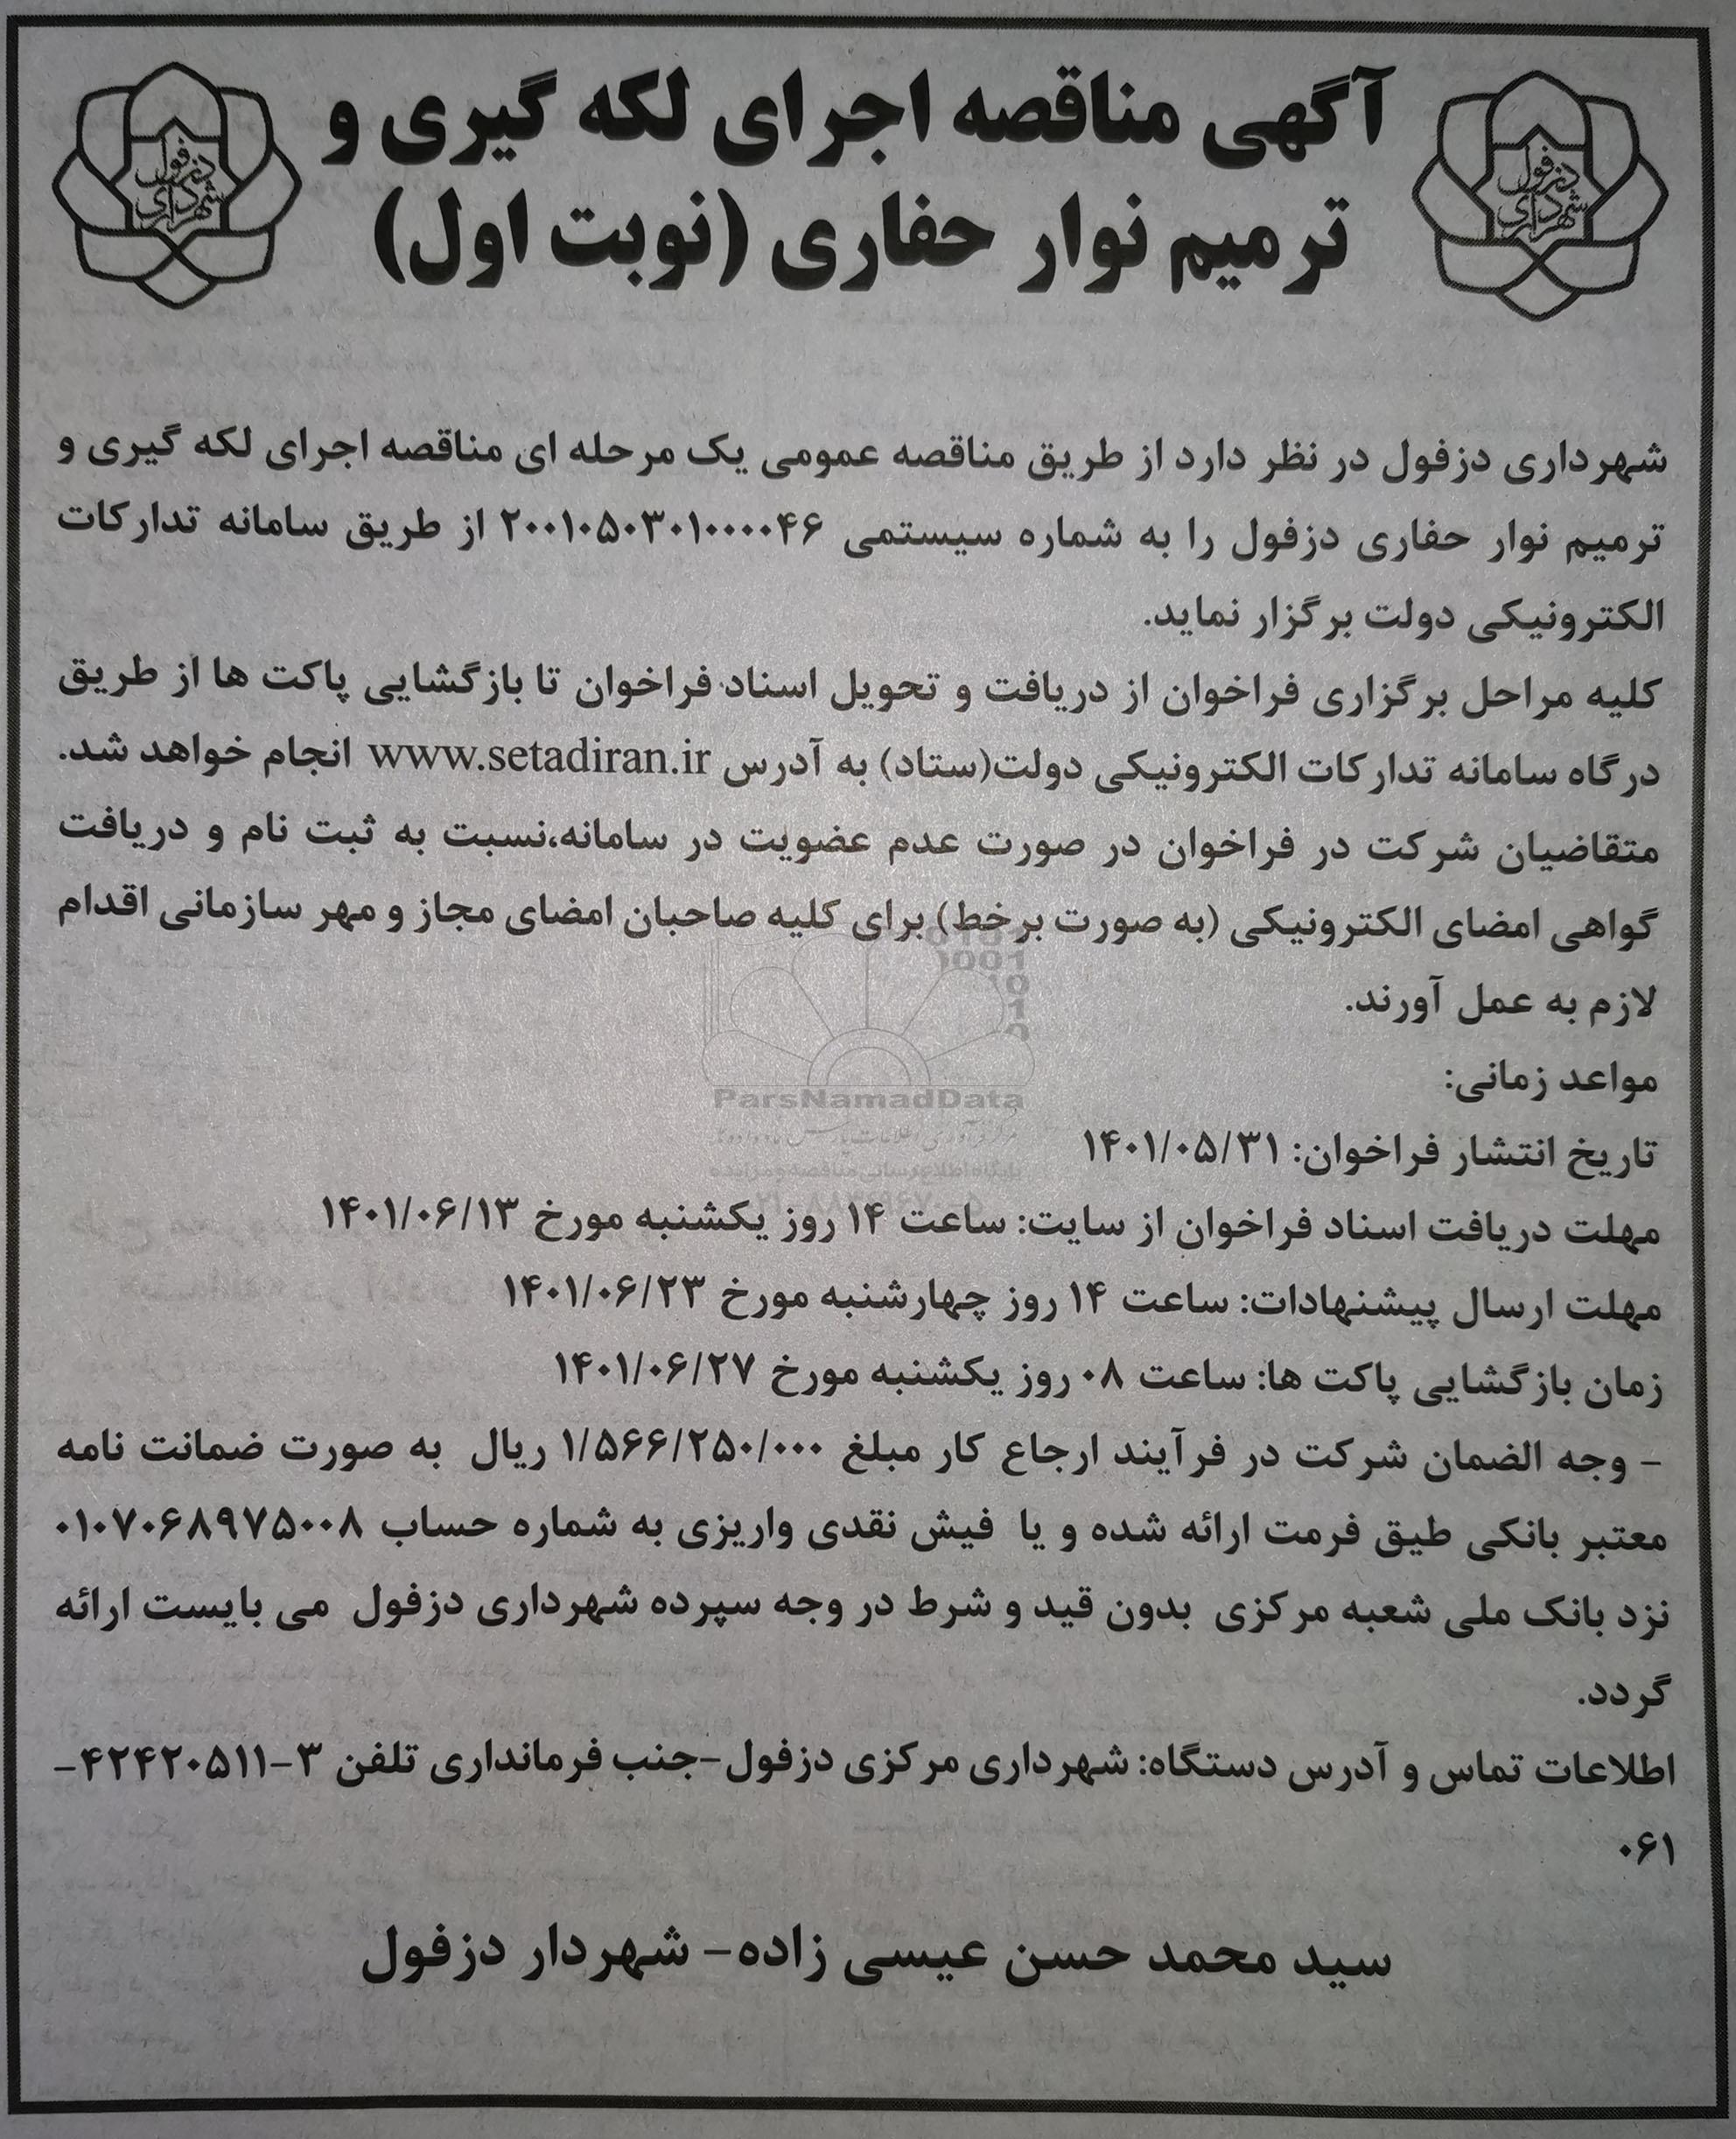 آگهی مناقصه اجرای لکه گیری و
ترمیم نوار حفاری (نوبت اول)
دزفول
شهرداری
دزفول
شهرداری
شهرداری دزفول در نظر دارد از طریق مناقصه عمومی یک مرحله ای مناقصه اجرای لکه گیری و
ترمیم نوار حفاری دزفول را به شماره سیستمی ۲۰۰۱۰۵۰۳۰۱۰۰۰۰۴۶ از طریق سامانه تدارکات
الکترونیکی دولت برگزار نماید.
کلیه مراحل برگزاری فراخوان از دریافت و تحویل اسناد فراخوان تا بازگشایی پاکت ها از طریق
درگاه سامانه تدارکات الکترونیکی دولت(ستاد) به آدرس www.setadiran.ir انجام خواهد شد.
متقاضیان شرکت در فراخوان در صورت عدم عضویت در سامانه،نسبت به ثبت نام و دریافت
گواهی امضای الکترونیکی (به صورت برخط) برای کلیه صاحبان امضای مجاز و مهر سازمانی اقدام
لازم به عمل آورند.
مواعد زمانی:
تاریخ انتشار فراخوان: ۱۴۰۱/۰۵/۳۱
مهلت دریافت اسناد فراخوان از سایت: ساعت ۱۴ روز یکشنبه مورخ ۱۴۰۱/۰۶/۱۳
مهلت ارسال پیشنهادات: ساعت ۱۴ روز چهارشنبه مورخ ۱۴۰۱/۰۶/۲۳
زمان بازگشایی پاکت ها: ساعت ۰۸ روز یکشنبه مورخ ۱۴۰۱/۰۶/۲۷
- وجه الضمان شرکت در فرآیند ارجاع کار مبلغ ۱/۵۶۶/۲۵۰/۰۰۰ ریال به صورت ضمانت نامه
معتبر بانکی طیق فرمت ارائه شده و یا فیش نقدی واریزی به شماره حساب ۰۱۰۷۰۶۸۹۷۵۰۰۸
نزد بانک ملی شعبه مرکزی بدون قید و شرط در وجه سپرده شهرداری دزفول می بایست ارائه
گردد.
اطلاعات تماس و آدرس دستگاه: شهرداری مرکزی دزفول-جنب فرمانداری تلفن ۳-۴۲۴۲۰۵۱۱-
۰۶۱
سید محمد حسن عیسی زاده- شهردار دزفول
ParsNamadData